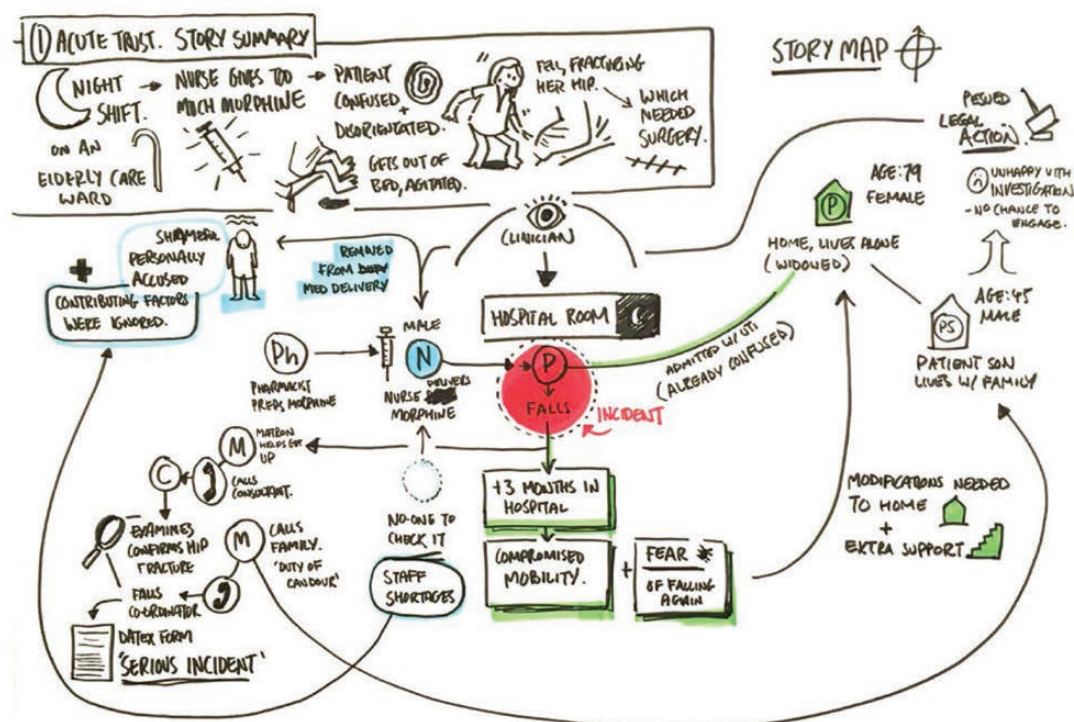 ① ACUTE TRUST. STORY SUMMARY
NIGHT
SHIFT.
ON AN
ELDERLY CARE
WARD
NURSE GIVES TOO
MUCH MORPHINE
PATIENT
CONFUSED
+
DISORIENTATED.
GETS OUT OF
BED, AGITATED.
FELL, FRACTURING
HER HIP.
WHICH
NEEDED
SURGERY.
STORY MAP
LEGAL
ACTION.
UNHAPPY WITH
INVESTIGATION
- NO CHANCE TO
ENGAGE.
AGE: 79
FEMALE
P
HOME, LIVES ALONE
(WIDOWED)
AGE: 45
MALE
PS
PATIENT SON
LIVES W/ FAMILY
CLINICIAN
HOSPITAL ROOM
PERSONALLY
ACCUSED
+
CONTRIBUTING FACTORS
WERE IGNORED.
REMOVED
FROM
MED DELIVERY
Ph
PHARMACIST
PREPS MORPHINE
MALE
N
NURSE DELIVERS
MORPHINE
P
FALLS
INCIDENT
ADMITTED W/ UTI
(ALREADY CONFUSED)
NO-ONE TO
CHECK IT
STAFF
SHORTAGES
M
MATRON
HELPS GET
UP
CALLS
CONSULTANT.
C
EXAMINES
CONFIRMS HIP
FRACTURE
M
CALLS
FAMILY.
'DUTY OF
CANDOUR'
FALLS
CO-ORDINATOR
DATEX FORM
'SERIOUS INCIDENT'
+3 MONTHS IN
HOSPITAL
COMPROMISED
MOBILITY.
+
FEAR
OF FALLING
AGAIN
MODIFICATIONS NEEDED
TO HOME
+
EXTRA SUPPORT